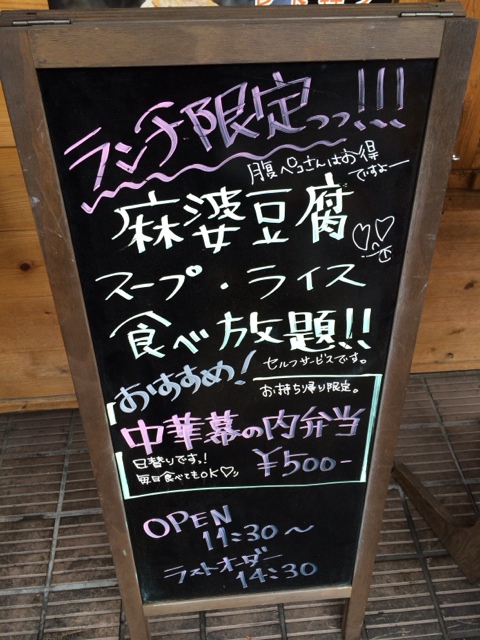 ランチ限定っっ!!!
腹ペコさんはお得
ですよー
麻婆豆腐
スープ・ライス
食べ放題!!
セルフサービスです。
おすすめ!
お持ち帰り限定。
中華幕の内弁当
日替りですっ!
毎日食べてもOK♡ッ
¥500-
OPEN
11:30〜
ラストオーダー
14:30